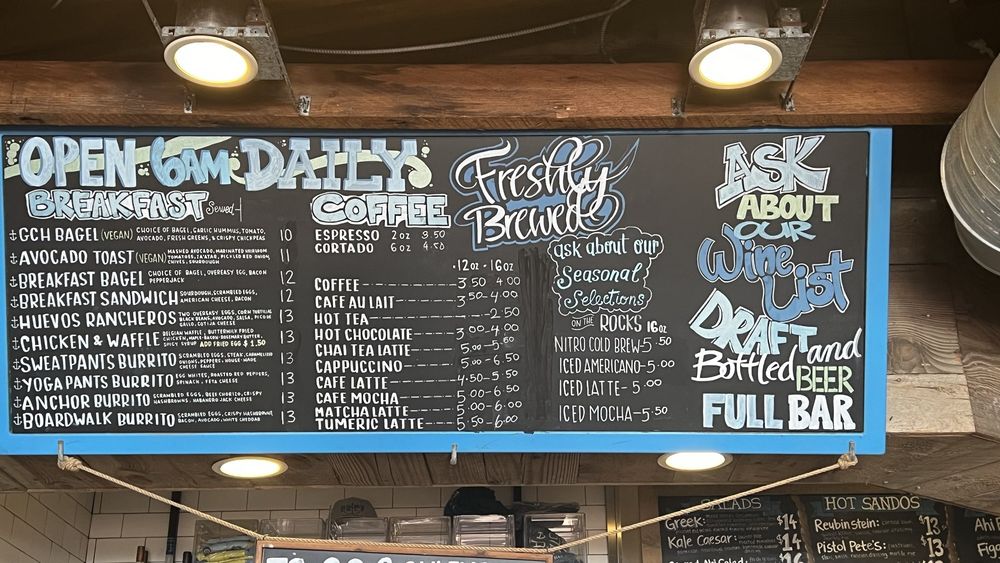 OPEN 6AM DAILY
BREAKFAST Served
GCH BAGEL (VEGAN) CHOICE OF BAGEL, GARLIC HUMMUS, TOMATO, AVOCADO, FRESH GREENS, & CRISPY CHICKPEAS 10
AVOCADO TOAST (VEGAN) MASHED AVOCADO, MARINATED HEIRLOOM TOMATOES, ZA'ATAR, PICKLED RED ONION, CHIVES, SOURDOUGH 11
BREAKFAST BAGEL CHOICE OF BAGEL, OVEREASY EGG, BACON PEPPERJACK 12
BREAKFAST SANDWICH SOURDOUGH, SCRAMBLED EGGS, AMERICAN CHEESE, BACON 12
HUEVOS RANCHEROS TWO OVEREASY EGGS, CORN TORTILLAS BLACK BEANS, AVOCADO, SALSA, PICO DE GALLO, COTIJA CHEESE 13
CHICKEN & WAFFLE BELGIAN WAFFLE, BUTTERMILK FRIED CHICKEN, MAPLE-BACON-ROSEMARY BUTTER, SPICY SYRUP ADD FRIED EGG $1.50 13
SWEATPANTS BURRITO SCRAMBLED EGGS, STEAK, CARAMELIZED ONIONS, PEPPERS, HOUSE-MADE CHEESE SAUCE 13
YOGA PANTS BURRITO EGG WHITES, ROASTED RED PEPPERS, SPINACH, FETA CHEESE 13
ANCHOR BURRITO SCRAMBLED EGGS, BEEF CHORIZO, CRISPY HASHBROWNS, HABANERO JACK CHEESE 13
BOARDWALK BURRITO SCRAMBLED EGGS, CRISPY HASHBROWNS, BACON, AVOCADO, WHITE CHEDDAR 13
COFFEE
ESPRESSO 2oz 3.50
CORTADO 6oz 4.50
12oz - 16oz
COFFEE 3.50 4.00
CAFE AU LAIT 3.50-4.00
HOT TEA 2.50
HOT CHOCOLATE 3.00-4.00
CHAI TEA LATTE 5.00-5.50
CAPPUCCINO 5.00-6.50
CAFE LATTE 4.50-5.50
CAFE MOCHA 5.00-6.50
MATCHA LATTE 5.00-6.00
TUMERIC LATTE 5.50-6.00
Freshly
Brewed
ask about our
Seasonal
Selections
ON THE ROCKS 16oz
NITRO COLD BREW-5.50
ICED AMERICANO-5.00
ICED LATTE-5.00
ICED MOCHA-5.50
ASK
ABOUT
OUR
Wine
List
DRAFT
and
Bottled BEER
FULL BAR
SALADS
Greek: $14
Kale Caesar: $14
HOT SANDOS
Reubinstein: $13
Pistol Pete's: $13